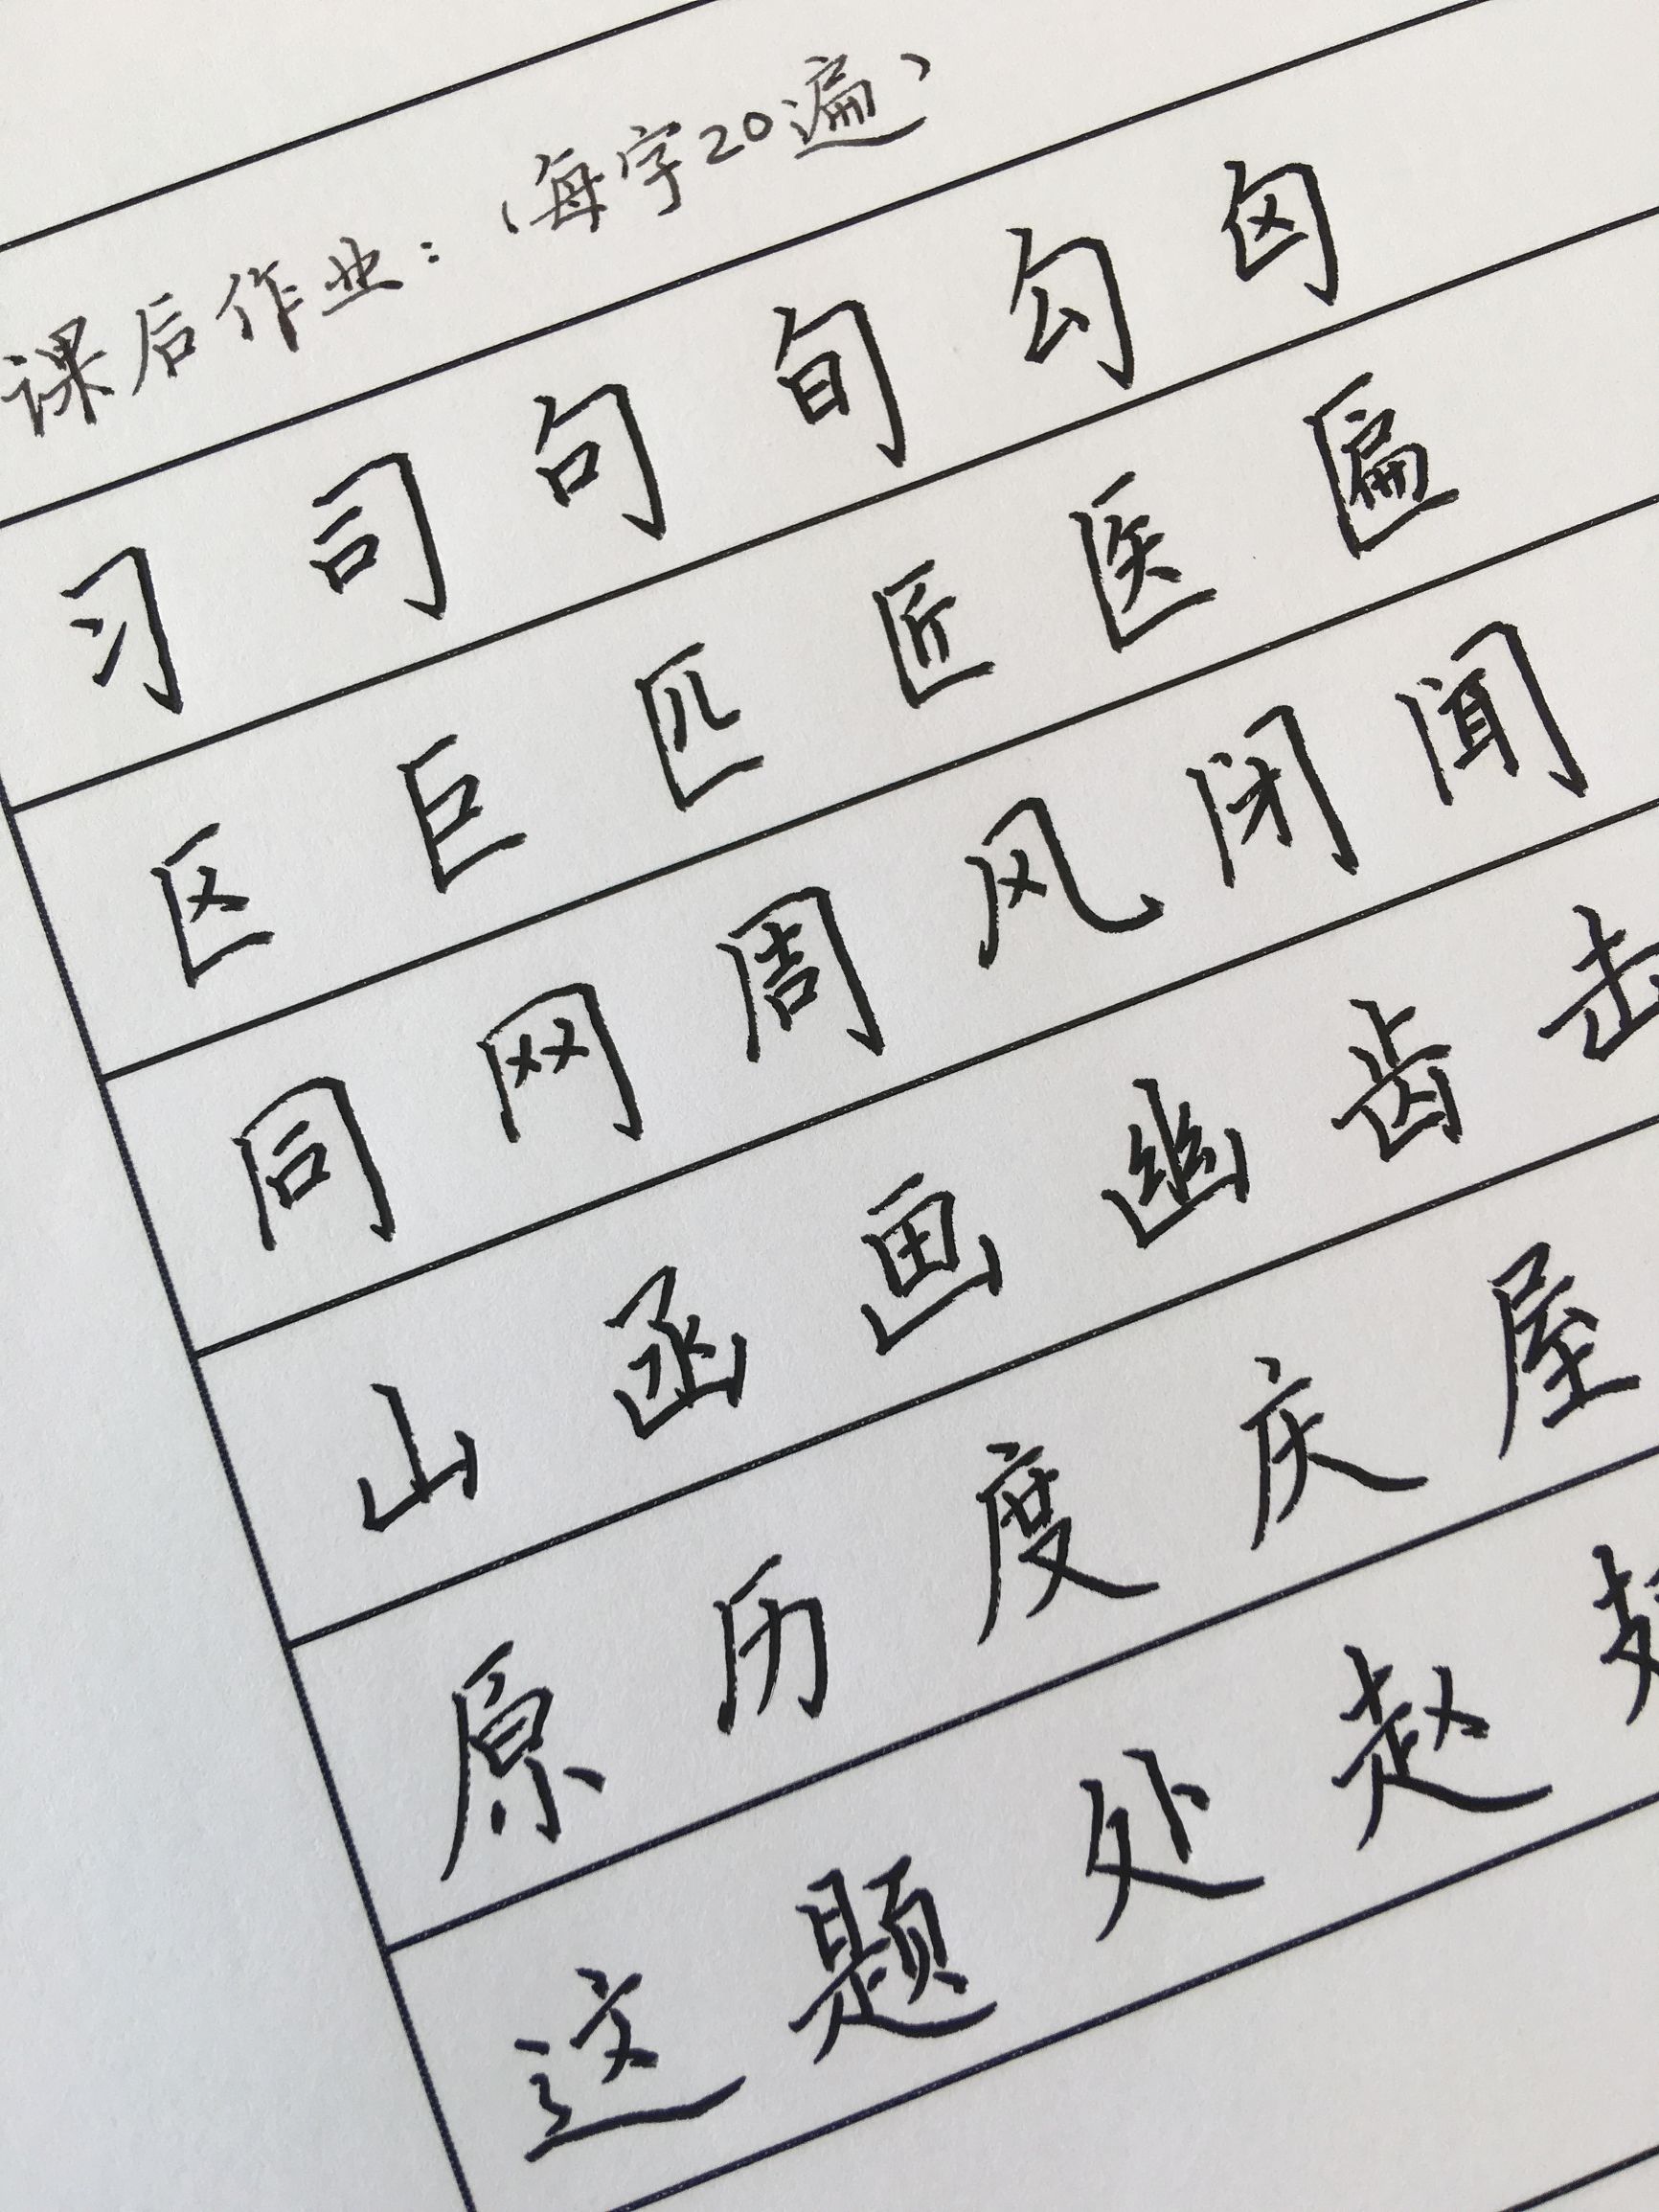 课后作业：（每字20遍）
习 司 句 旬 勾 匈
区 巨 匹 匠 医 匾
同 网 周 风 闭 闻
山 函 画 幽 齿 击
原 历 度 庆 屋
这 题 处 赵